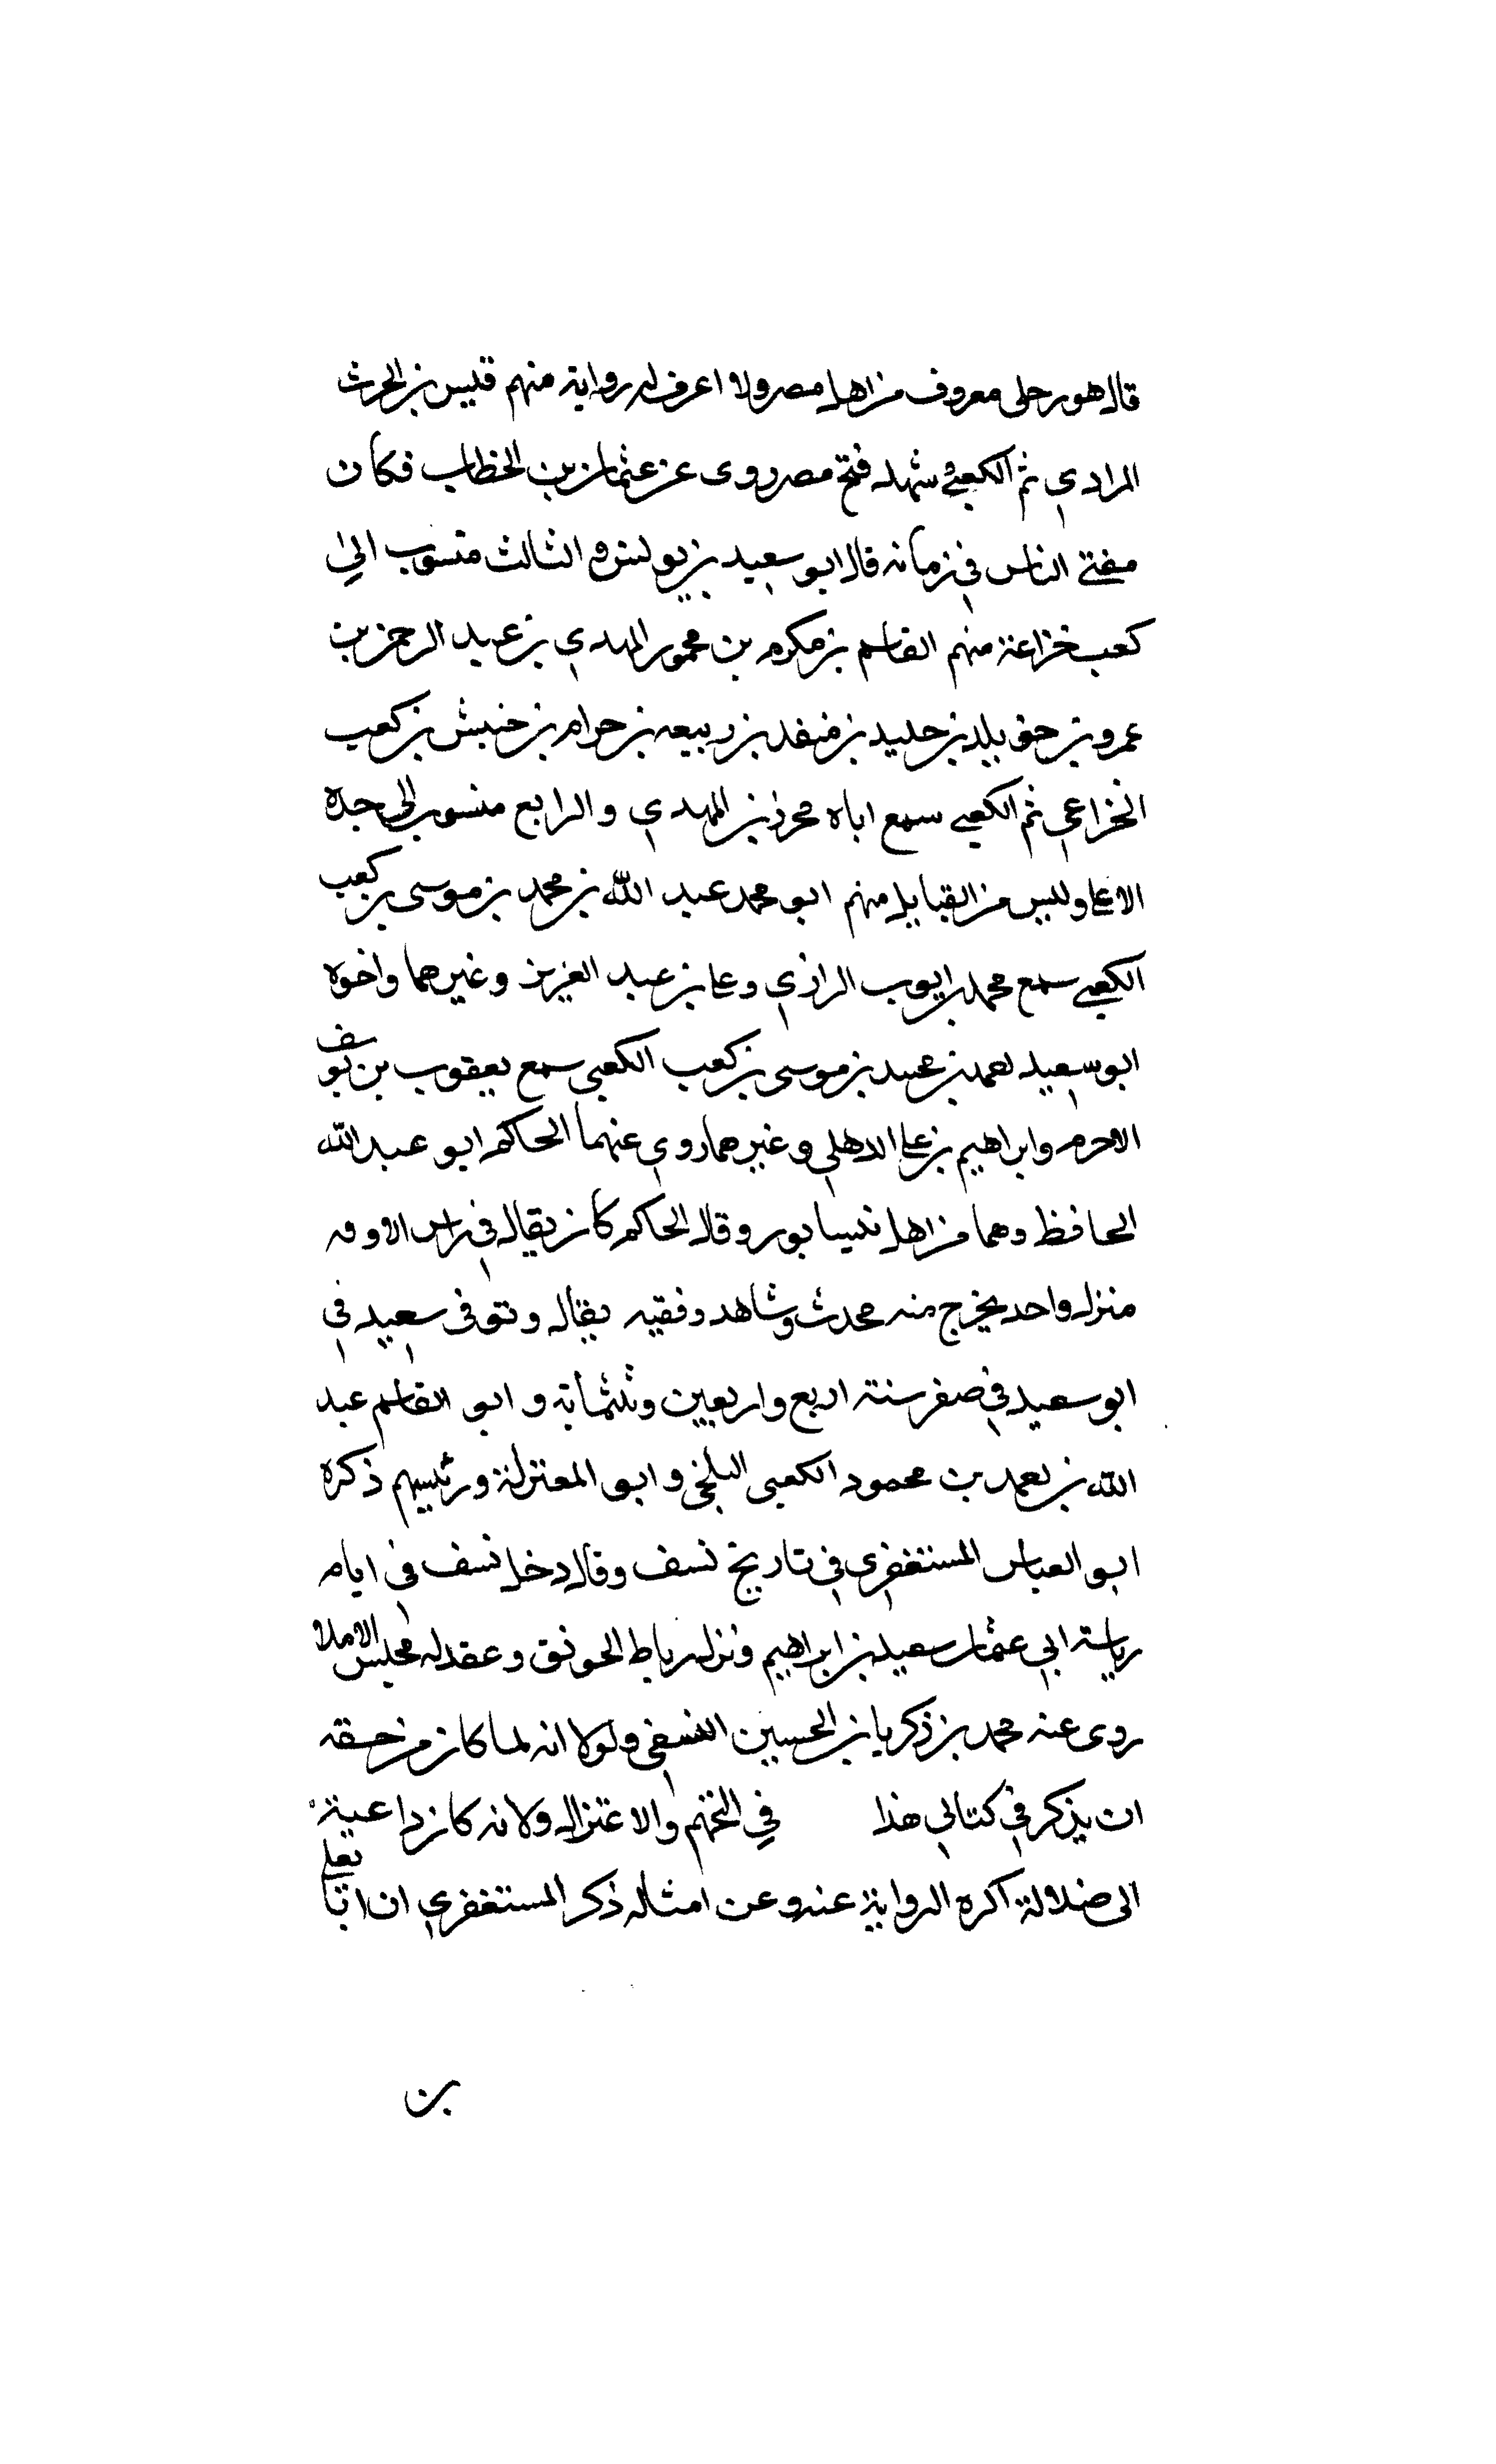 قال هو رجل معروف من اهل مصر ولا اعرف له رواية منهم قيس بن الحرث
المرادي ثم الكعبي شهد فتح مصر روى عن عثمان بن الخطاب فكان
مفتي الناس في زمانه قال ابو سعيد بن يونس والثالث منسوب الي
كعب خزاعة منهم القاسم بن مكرم بن محمور المهدي بن عبد الرحمن بن
عمرو بن خويلد بن حليد بن منقد بن ربيعه بن حرام بن خنبش بن كعب
الخزاعي ثم الكعبي سمع اباه محرز بن المهدي والرابع منسوب الى جده
الاعلى وليس من القبايل منهم ابو محمد عبد الله بن محمد بن موسى بن كعب
الكعبي سمع محمد بن ايوب الرازي وعلي بن عبد العزيز وغيرهما واخوه
ابو سعيد بن عبيد بن موسى بن كعب الكعبي سمع يعقوب بن يوسف
الاحرم وابراهيم بن علي الدهلي وغيرهما روي عنهما الحاكم ابو عبد الله
الحافظ وهما من اهل نيسابور وقال الحاكم كان يقال في راس
منزل واحد يخرج منه محدث وشاهد وفقيه يقال وتوفى سعيد في
ابو سعيد في صفر سنة اربع واربعين وثلثمائة وابو القاسم عبد
الله بن بن محمود الكعبي البلخي وابو المعتزلة ورئيسهم ذكره
ابو العباس المستغفري في تاريخ نسف وقال دخل نسف في ايام
رياسة ابي عثمان سعيد بن ابراهيم ونزل رباط الحونق وعقد له مجلس الاملا
روى عنه محمد بن زكريا بن الحسين النسفي ولولا انه لما كان من حقه
ان يذكر في كتابي هذا في التجهم والاعتزال ولانه كان داعية
الى ضلالة اكره الرواية عنه وعن امثاله ذكر المستغفري ان ابا يعلي
بن